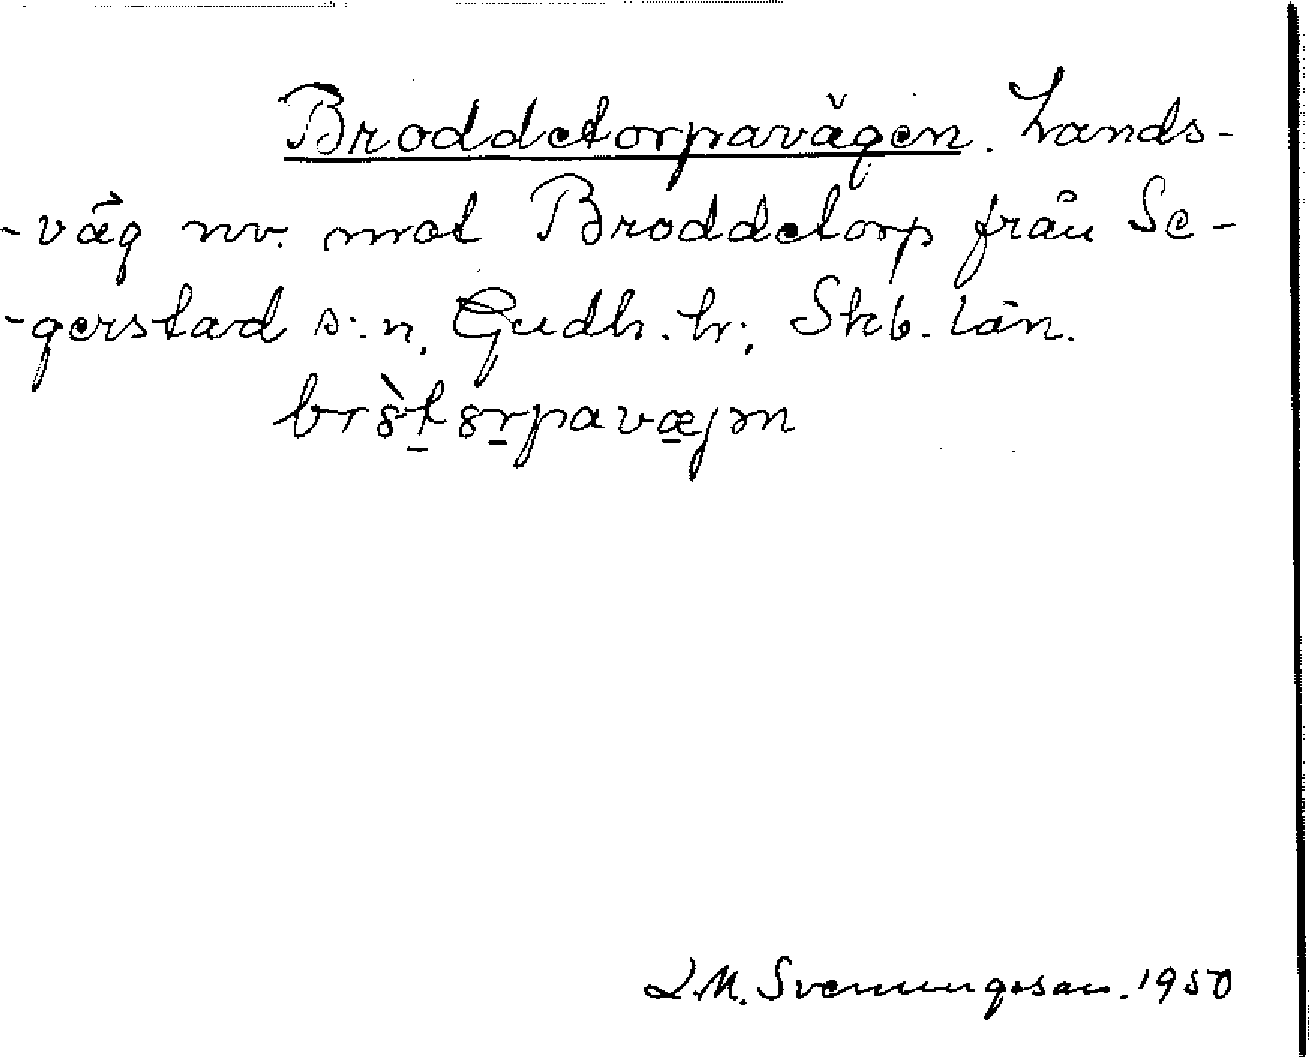 Broddetorpavägen. Lands-
-väg nv. mot Broddetorp från Se-
-gerstad s:n, Gudh. hr; Skb. län.
br8̀t̲8r̲pavæ̲jın
L.M. Svenungsson. 1950